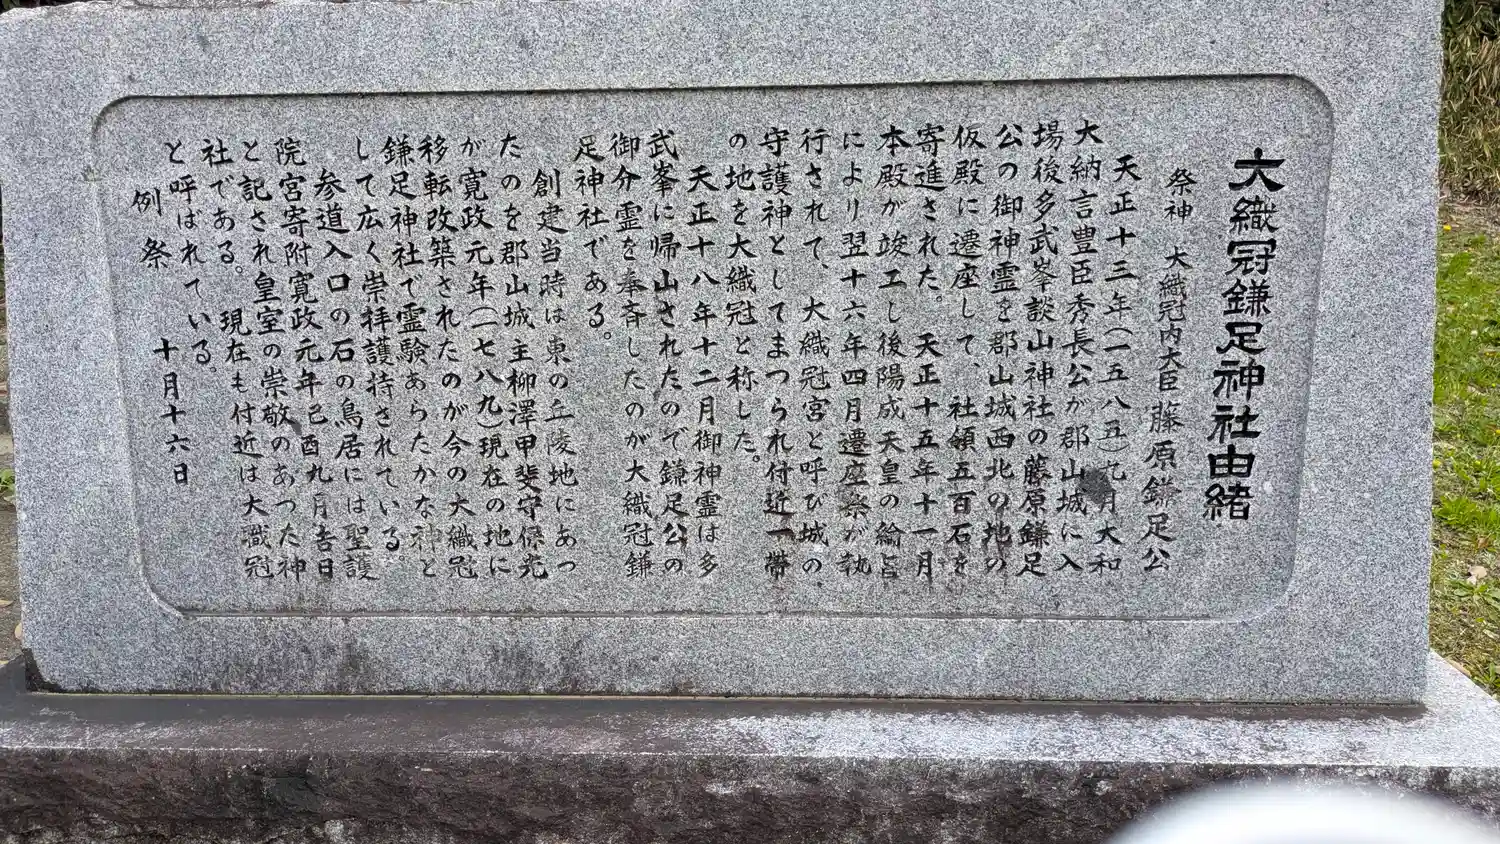 大織冠鎌足神社由緒
祭神　大織冠内大臣藤原鎌足公
天正十三年(一五八五)九月大和
大納言豊臣秀長公が郡山城に入
場後多武峯談山神社の藤原鎌足
公の御神霊を郡山城西北の地の
仮殿に遷座して、社領五百石を
寄進された。天正十五年十一月
本殿が竣工し後陽成天皇の綸旨
により翌十六年四月遷座祭が執
行されて、大織冠宮と呼び城の、
守護神としてまつられ付近一帯
の地を大織冠と称した。
天正十八年十二月御神霊は多
武峯に帰山されたので鎌足公の
御分霊を奉斉したのが大織冠鎌
足神社である。
創建当時は東の丘陵地にあっ
たのを郡山城主柳澤甲斐守保光
が寛政元年(一七八九)現在の地に
移転改築されたのが今の大織冠
鎌足神社で霊験あらたかな神と
して広く崇拝護持されている。
参道入口の石の鳥居には聖護
院宮寄附寛政元年己酉九月吉日
と記され皇室の崇敬のあつた神
社である。現在も付近は大職冠
と呼ばれている。
例祭　十月十六日